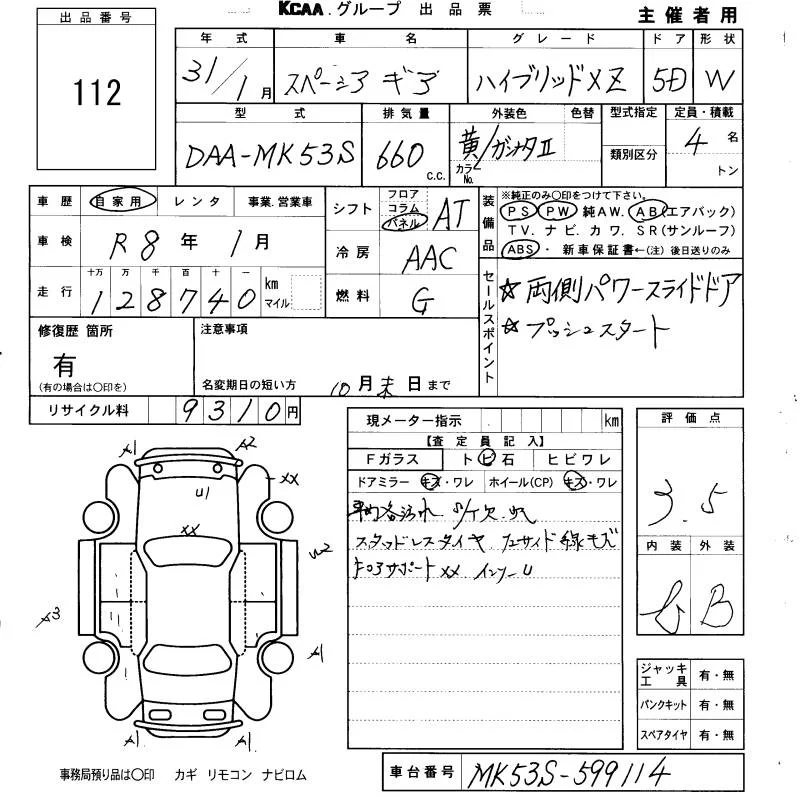 KCAA.グループ 出品票
主催者用
出品番号
112
年式 車名 グレード ドア 形状
31/1月 スペーシア ギア ハイブリッドXZ 5D W
型式 排気量 外装色 色替 型式指定 定員・積載
DAA-MK53S 660 c.c. 黄/ガンメタII カラーNo. 類別区分 4名
トン
車歴 自家用 レンタ 事業.営業車
車検 R8年1月
走行 十万 万 千 百 十 一
128740 km マイル
シフト フロア コラム パネル AT
冷房 AAC
燃料 G
装備品
※純正のみ〇印をつけて下さい。
PS PW 純AW. AB(エアバック)
TV. ナビ. カワ. SR(サンルーフ)
ABS・ 新車保証書←(注) 後日送りのみ
セールスポイント
☆両側パワースライドドア
☆プッシュスタート
修復歴 箇所
有
(有の場合は〇印を)
注意事項
名変期日の短い方 10月末日まで
リサイクル料 9310円
現メーター指示 km
【査定員記入】
Fガラス トビ石 ヒビワレ
ドアミラー キズ・ワレ ホイール(CP) キズ・ワレ
スタッドレスタイヤ
コアサポートXX インナーU
評価点
3.5
内装 外装
B
A1 A2
XX
U1
XX
U2
A3
A1
A1
ジャッキ工具 有・無
パンクキット 有・無
スペアタイヤ 有・無
事務局預り品は〇印 カギ リモコン ナビロム
車台番号 MK53S-599114